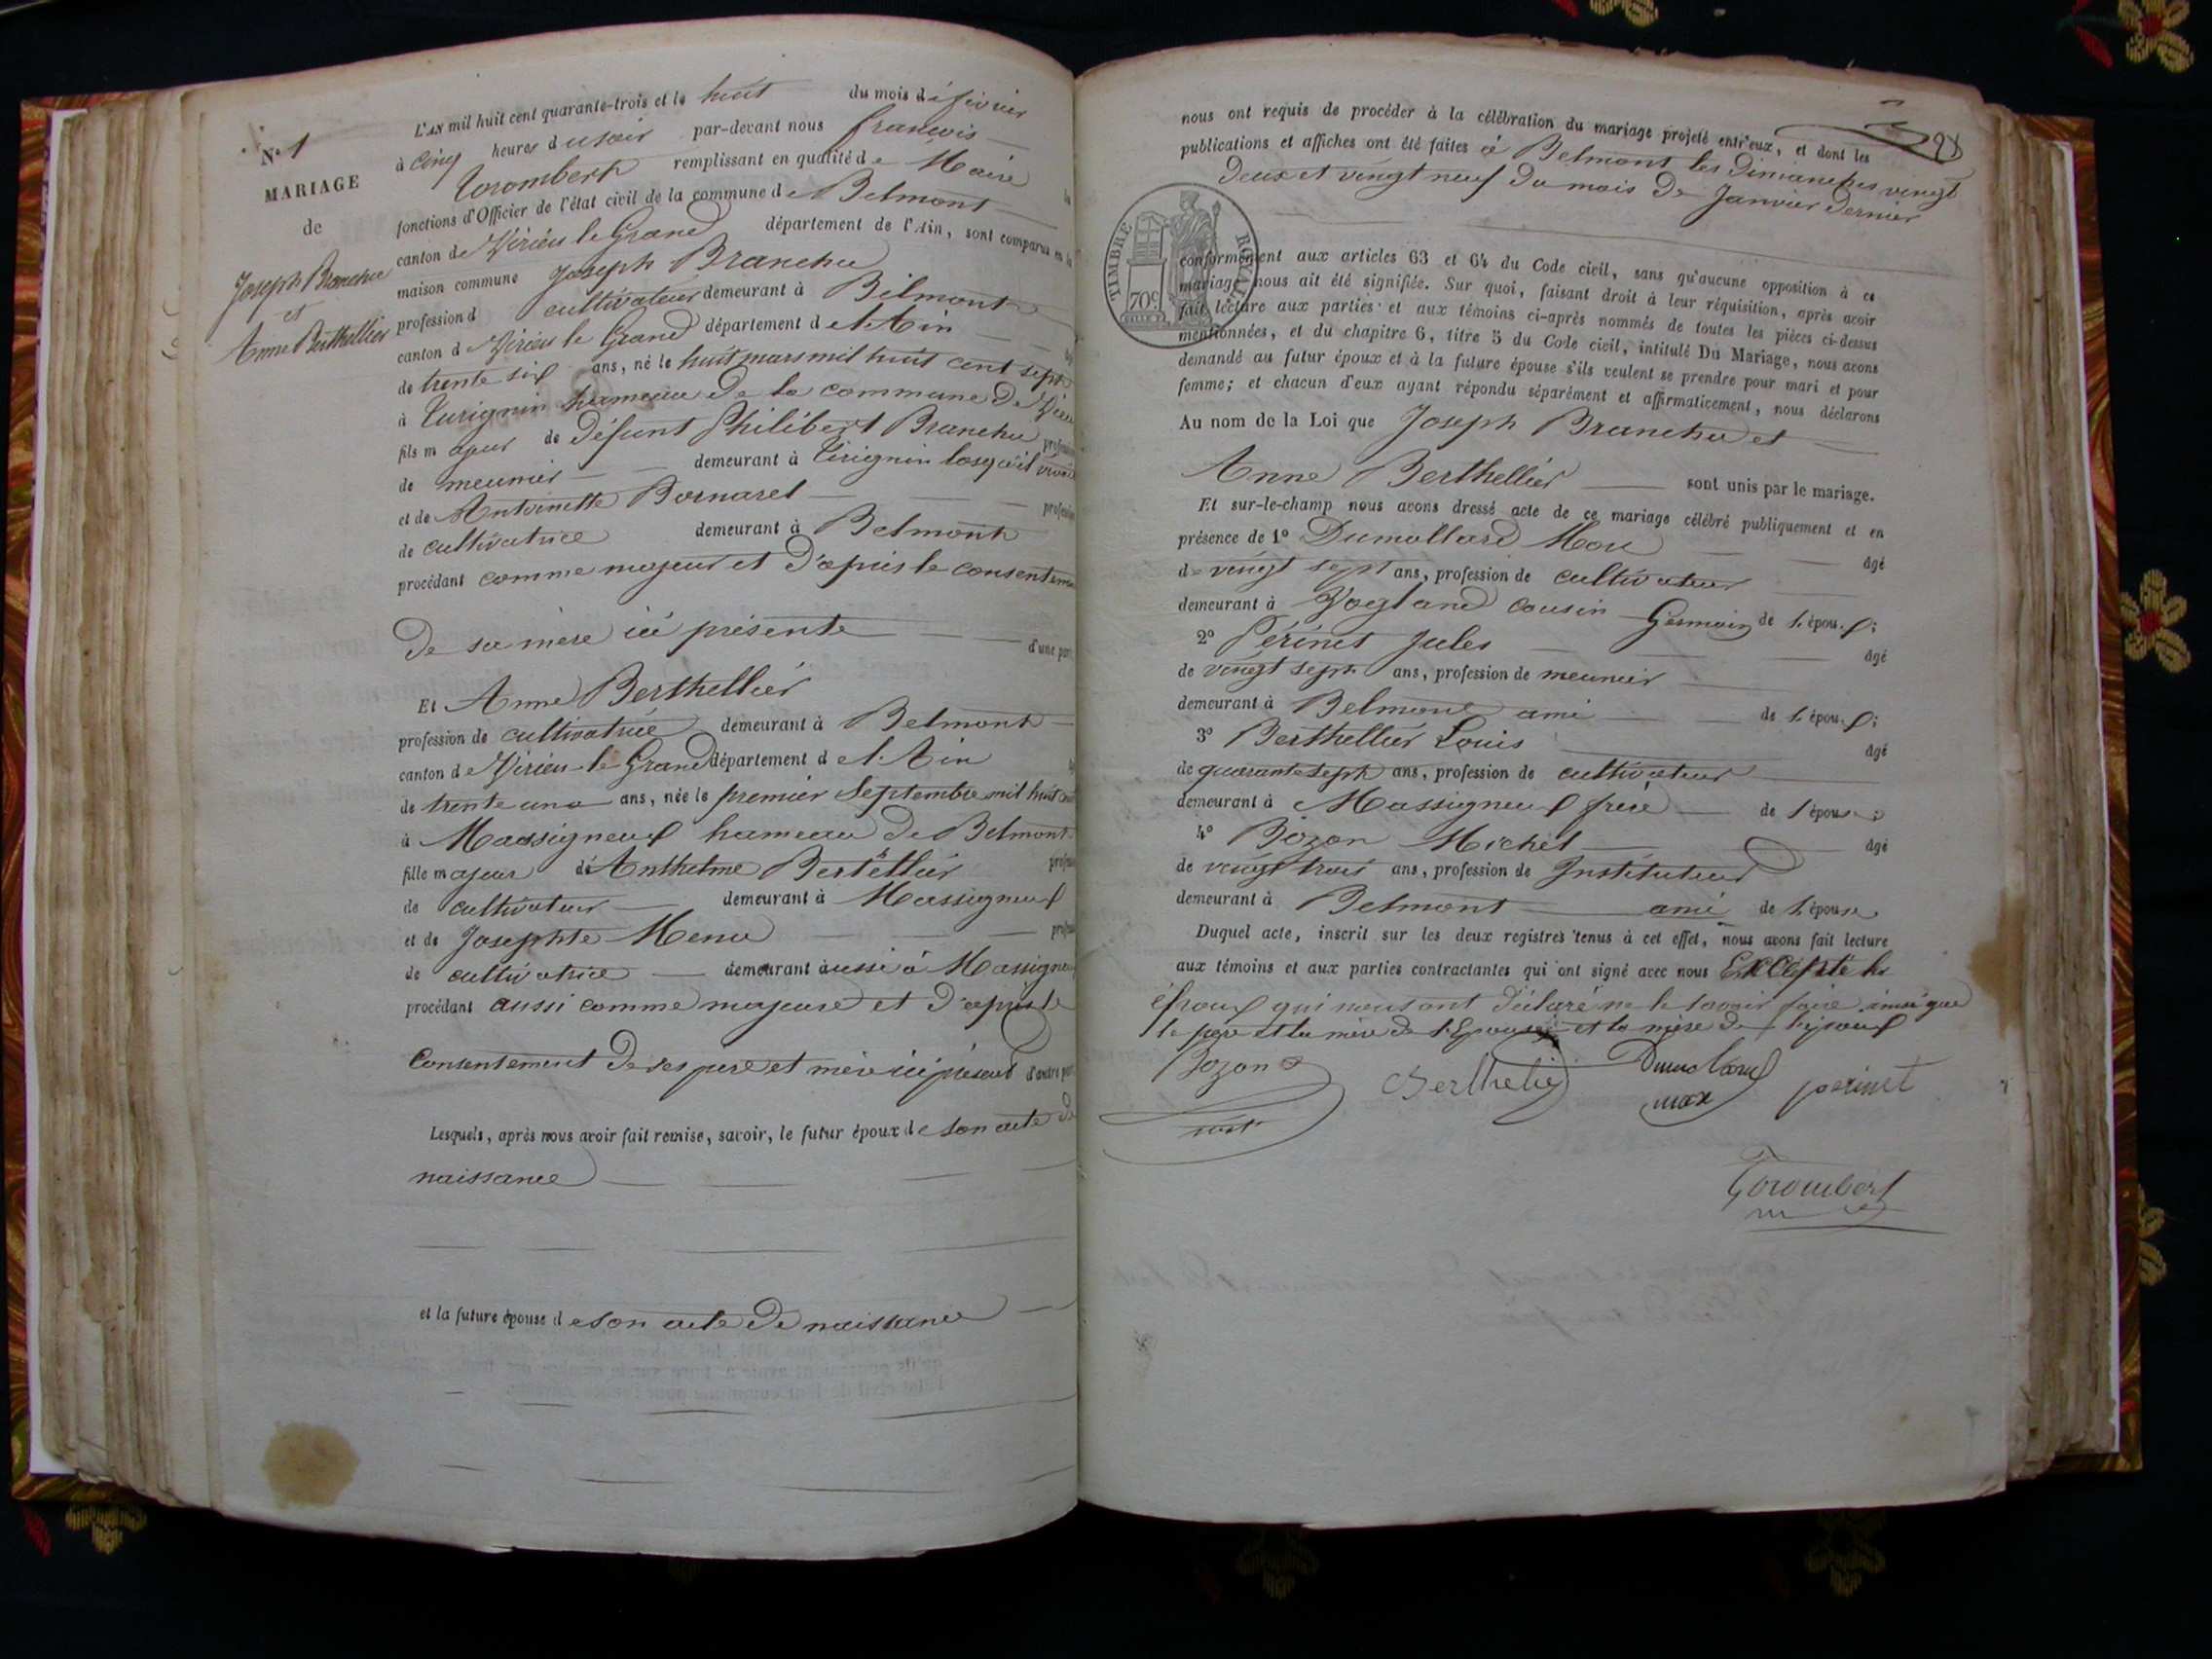 N.o 1
MARIAGE
de
Joseph Branchu
et
Anne Berthellier
L'AN mil huit cent quarante-trois et le huit du mois de février
à cinq heures du soir par-devant nous francois
Corombert remplissant en qualité de Maire
fonctions d'Officier de l'état civil de la commune de Belmont
canton de Virieu le Grand département de l'Ain, sont comparus en la
maison commune Joseph Branchu
profession d cultivateur demeurant à Belmont
canton d Virieu le Grand département de l'Ain
de trente six ans, né le huit mars mil huit cent sept
à hameau de la commune de Vieu
fils majeur de défunt Philibert Branchu profession
de meunier demeurant à losqu'il vivait
et de Antoinette Bornarel profession
de cultivatrice demeurant à Belmont
procédant comme majeur et d'après le consentement
de sa mère ici présente d'une part
Et Anne Berthellier
profession de cultivatrice demeurant à Belmont
canton de Virieu-le-Grand département de l'Ain
de trente une ans, née le premier Septembre mil huit cent
à Massigneux hameau de Belmont
fille majeur de Anthelme Berthellier
de cultivateur demeurant à Massigneux
et de Josephte Menu
de cultivatrice demeurant aussi à Massigneux
procédant aussi comme majeure et d'après le
Consentement de ses père et mère ici présent d'autre part
Lesquels, après nous avoir fait remise, savoir, le futur époux de son acte de
naissance
et la future épouse de son acte de naissance
nous ont requis de procéder à la célébration du mariage projeté entr'eux, et dont les
publications et affiches ont été faites à Belmont les Dimanches vingt
deux et vingt neuf du mois de Janvier dernier
TIMBRE ROYAL
70c
conformément aux articles 63 et 64 du Code civil, sans qu'aucune opposition à ce
mariage nous ait été signifiée. Sur quoi, faisant droit à leur réquisition, après avoir
fait lecture aux parties et aux témoins ci-après nommés de toutes les pièces ci-dessus
mentionnées, et du chapitre 6, titre 5 du Code civil, intitulé Du Mariage, nous avons
demandé au futur époux et à la future épouse s'ils veulent se prendre pour mari et pour
femme; et chacun d'eux ayant répondu séparément et affirmativement, nous déclarons
Au nom de la Loi que Joseph Branchu et
Anne Berthellier sont unis par le mariage.
Et sur-le-champ nous avons dressé acte de ce mariage célébré publiquement et en
présence de 1o Dumollard âgé
de vingt sept ans, profession de cultivateur
demeurant à cousin Germain de l'époux;
2o Périnet Jules âgé
de vingt sept ans, profession de meunier
demeurant à Belmont ami de l'époux;
3o Berthellier Louis âgé
de quarante sept ans, profession de cultivateur
demeurant à Massigneux frère de l'épouse;
4o Bozon Michel âgé
de vingt trois ans, profession de Instituteur
demeurant à Belmont ami de l'épouse
Duquel acte, inscrit sur les deux registres tenus à cet effet, nous avons fait lecture
aux témoins et aux parties contractantes qui ont signé avec nous Excepté les
époux qui nous ont déclaré ne le savoir faire ainsi que
le père et la mère de l'Epouse et la mère de l'époux
Bozon
Berthelie
Dumollard
max
perinet
Corombert